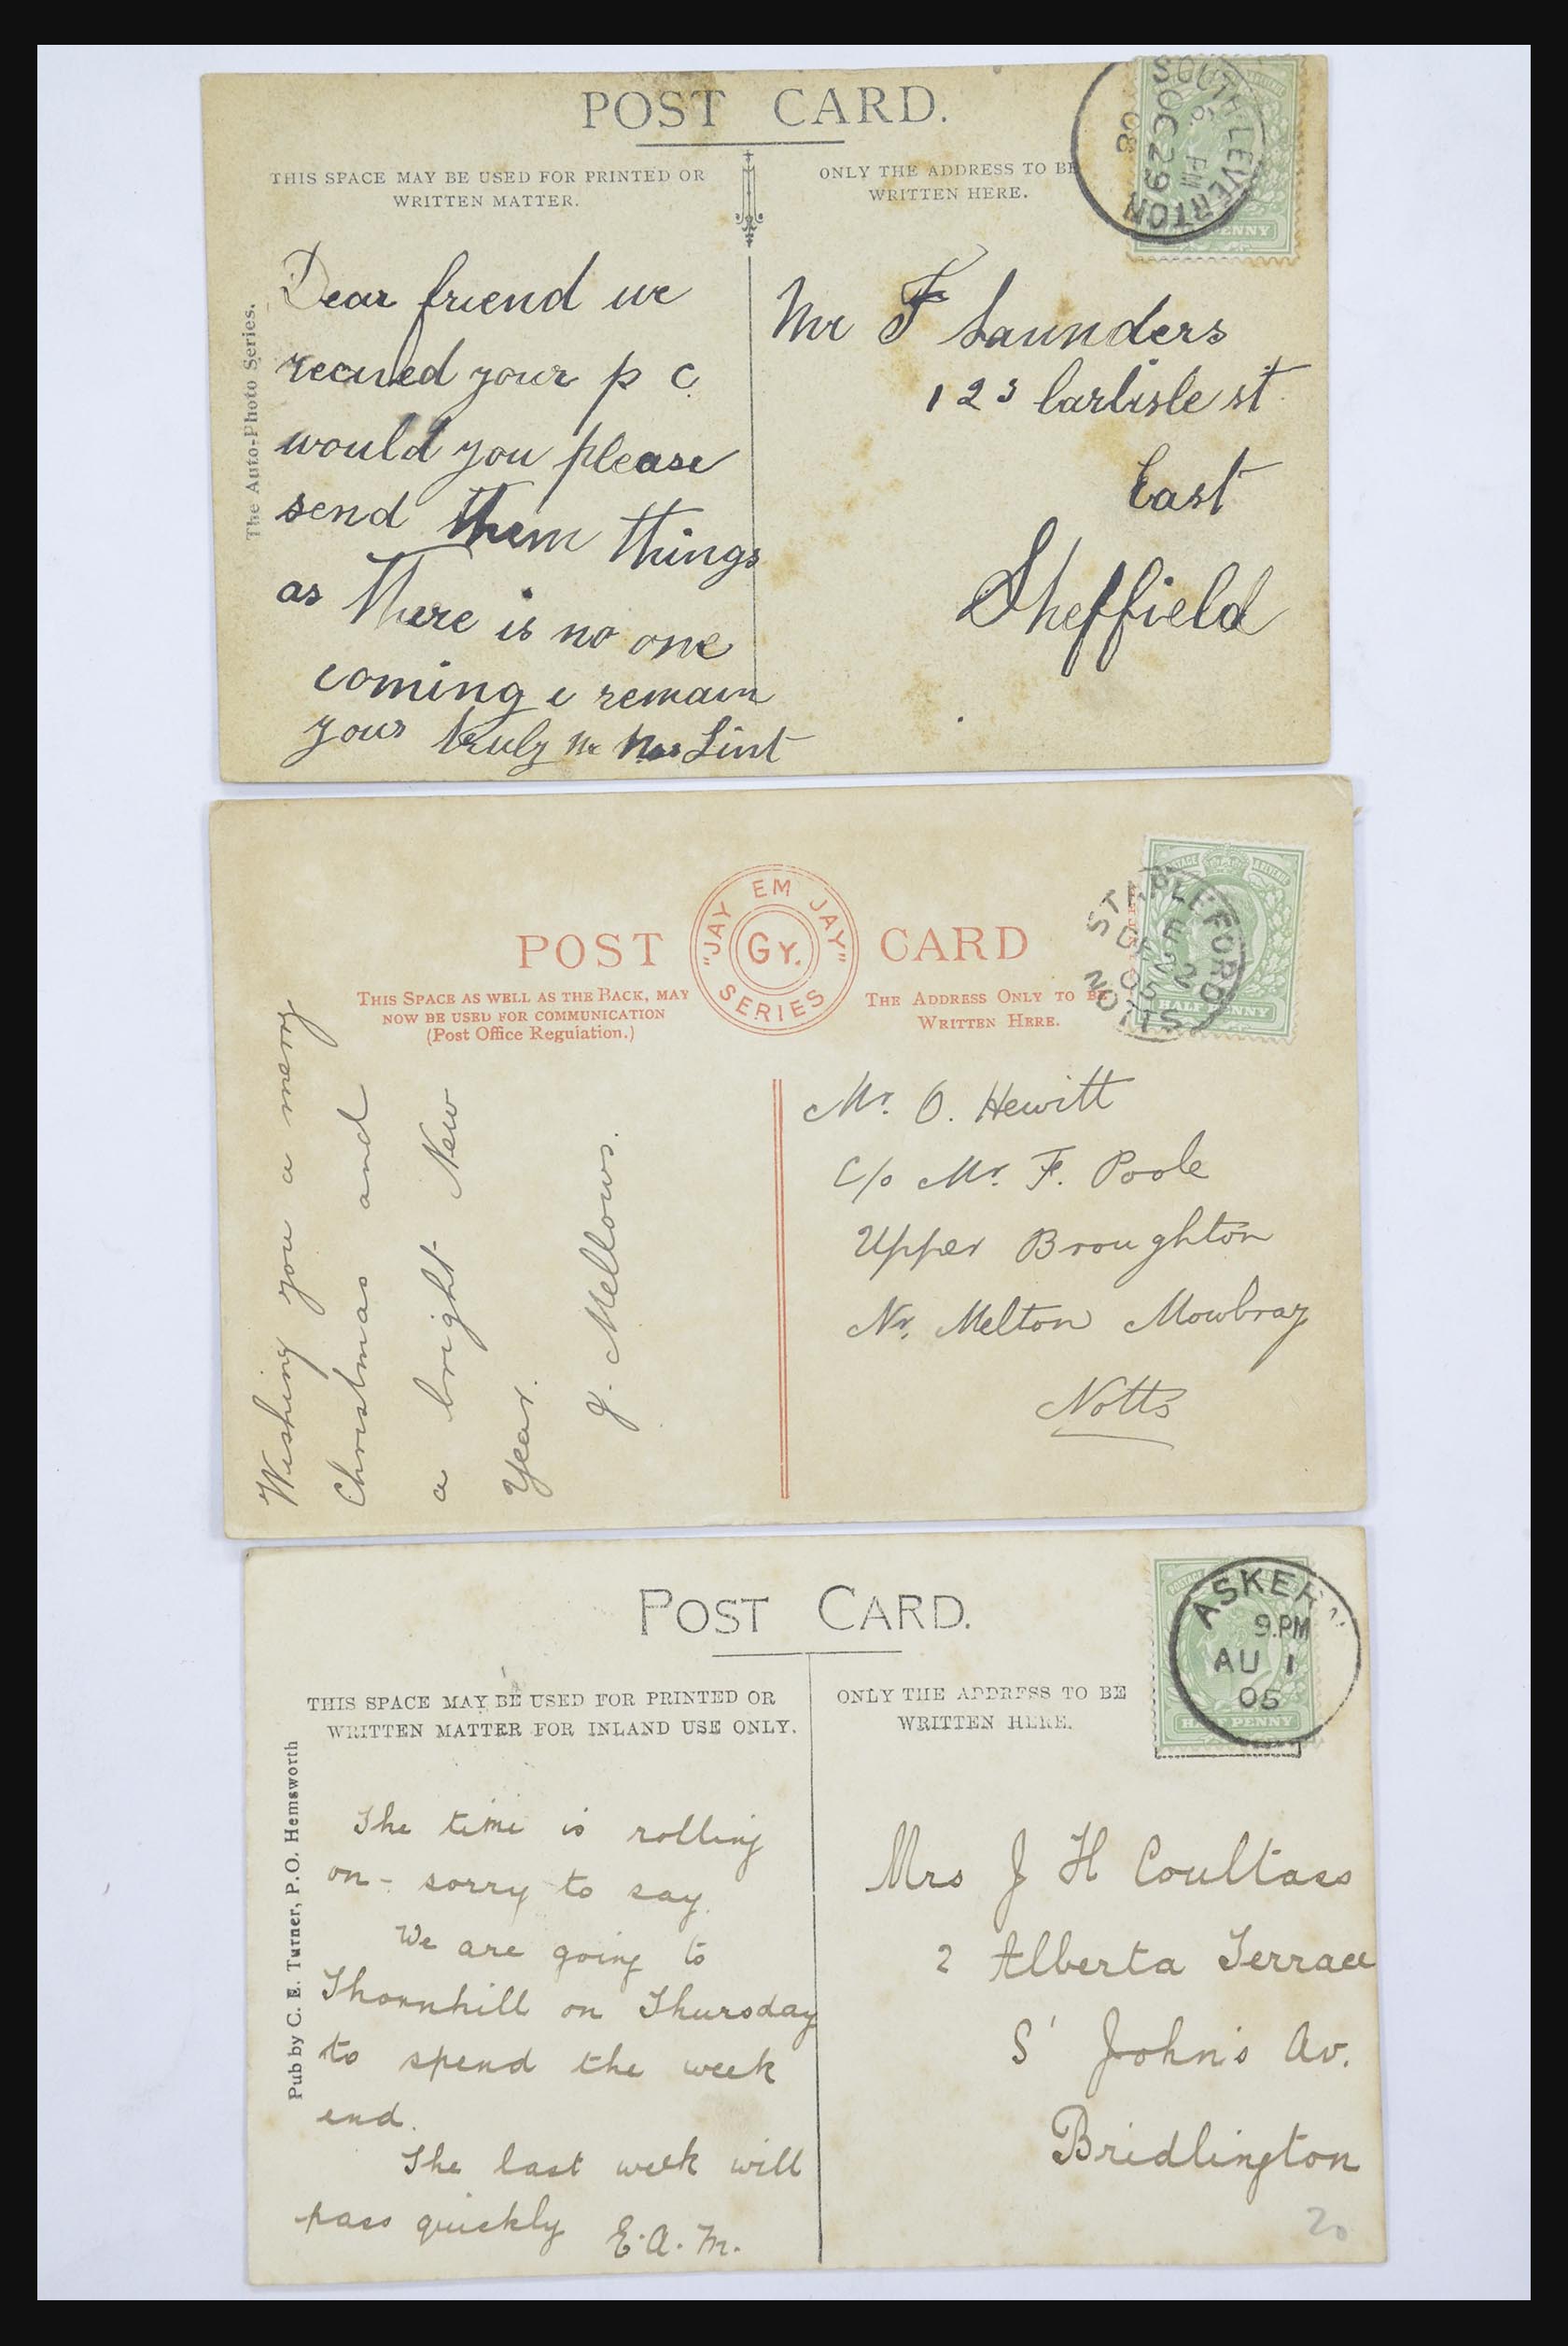 POST CARD.
THIS SPACE MAY BE USED FOR PRINTED OR
WRITTEN MATTER.
ONLY THE ADDRESS TO BE
WRITTEN HERE.
SOUTH LEVERTON
6 PM
OC 29
08
HALFPENNY
The Auto-Photo Series.
Dear friend we
recived your p c
would you please
send them things
as There is no one
coming i remain
yours truly Mr Mrs Lint
Mr F Saunders
123 Carlisle st
East
Sheffield
POST CARD
"JAY EM JAY" SERIES
GY.
THIS SPACE AS WELL AS THE BACK, MAY
NOW BE USED FOR COMMUNICATION
(Post Office Regulation.)
THE ADDRESS ONLY TO BE
WRITTEN HERE.
STAPLEFORD
DE 2
NOTTS
POSTAGE
HALFPENNY
Wishing you a merry
Christmas and
a bright New
Year.
J. Mellows.
Mr. O. Hewitt
C/o Mr. F. Poole
Upper Broughton
Nr. Melton Mowbray
Notts
POST CARD.
THIS SPACE MAY BE USED FOR PRINTED OR
WRITTEN MATTER FOR INLAND USE ONLY.
ONLY THE ADDRESS TO BE
WRITTEN HERE.
ASKERN
9.PM
AU 1
05
HALFPENNY
Pub by C. E. Turner, P.O. Hemsworth
The time is rolling
on - sorry to say.
We are going to
Thornhill on Thursday
to spend the week
end.
The last week will
pass quickly E.A.M.
Mrs J H Coultass
2 Alberta Terrace
St John's Av.
Bridlington
20